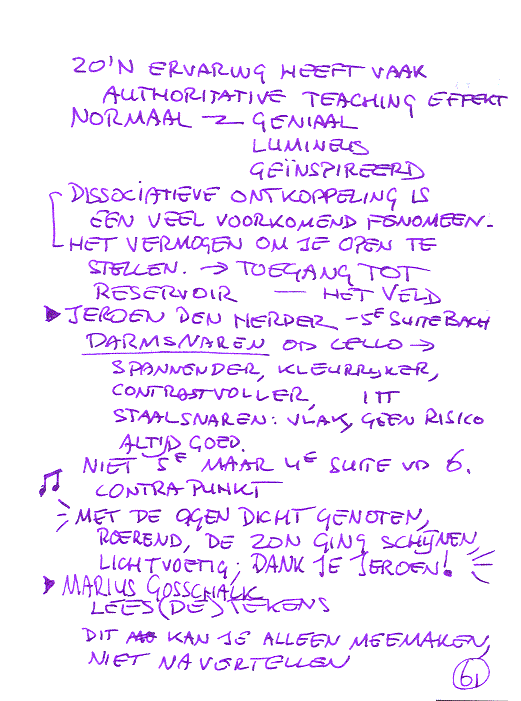 ZO'N ERVARING HEEFT VAAK
AUTHORITATIVE TEACHING EFFEKT
NORMAAL — GENIAAL
LUMINEUS
GEÏNSPIREERD
DISSOCIATIEVE ONTKOPPELING IS
EEN VEEL VOORKOMEND FENOMEEN.
HET VERMOGEN OM JE OPEN TE
STELLEN. → TOEGANG TOT
RESERVOIR — HET VELD
▶ JEROEN DEN HERDER - 5E SUITE BACH
DARMSNAREN OP CELLO →
SPANNENDER, KLEURRIJKER,
CONTRASTVOLLER, ITT
STAALSNAREN: VLAK, GEEN RISICO
ALTIJD GOED.
NIET 5E MAAR 4E SUITE VD 6.
♫ CONTRAPUNKT
MET DE OGEN DICHT GENOTEN,
ROEREND, DE ZON GING SCHIJNEN,
LICHTVOETIG; DANK JE JEROEN!
▶ MARIUS GOSSCHALK
LEES(DE)TEKENS
DIT KAN JE ALLEEN MEEMAKEN,
NIET NAVERTELLEN
61